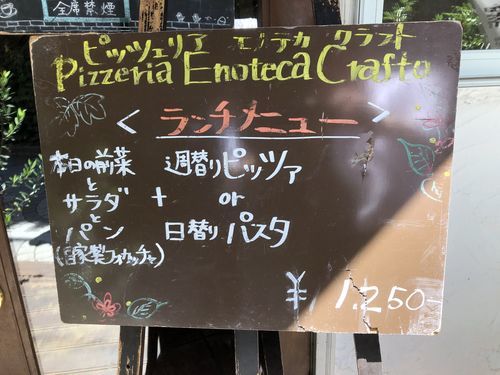 全席禁煙
ピッツェリア エノテカ クラフト
Pizzeria Enoteca Crafto
< ランチメニュー >
本日の前菜
と
サラダ
と
パン
(自家製フォカッチャ)
+
週替りピッツァ
or
日替りパスタ
¥ 1.250-